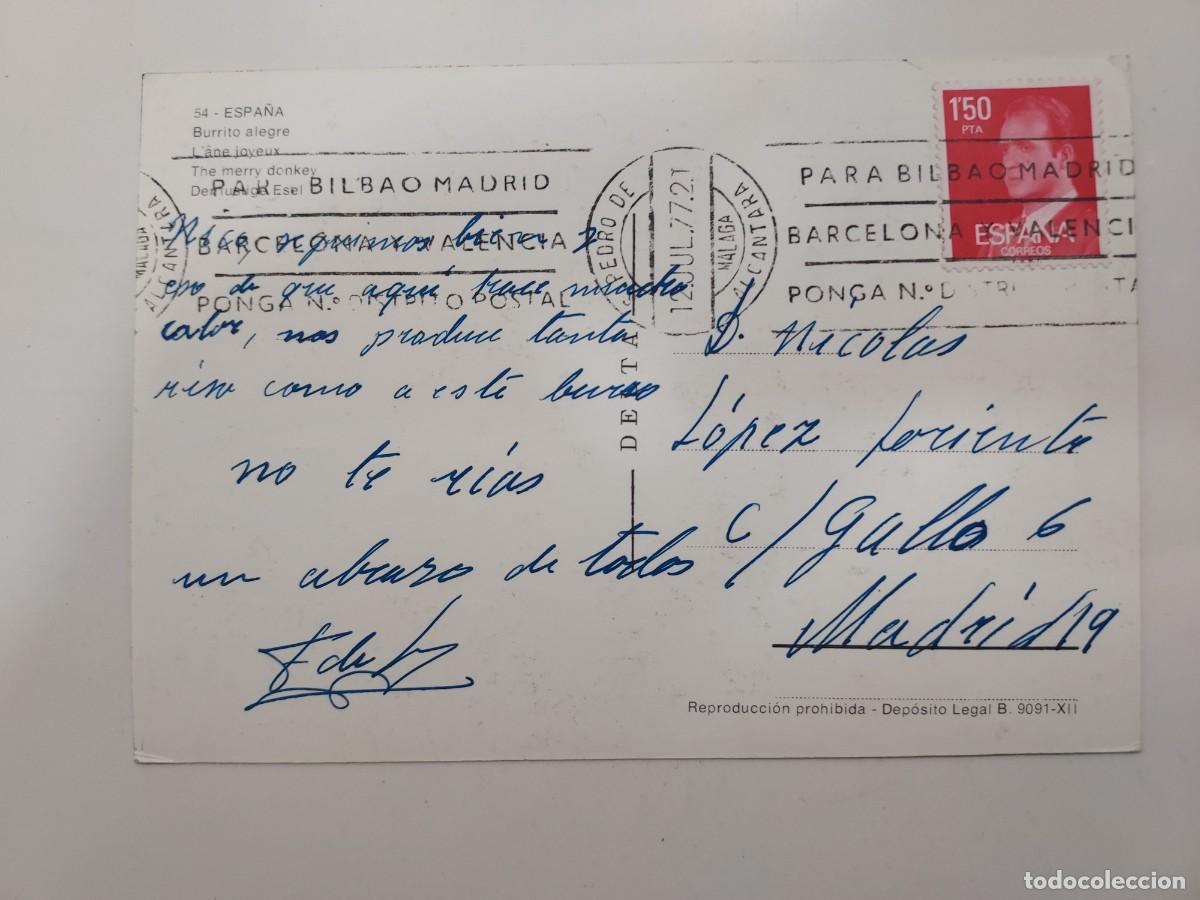 54 - ESPAÑA
Burrito alegre
L'âne joyeux
The merry donkey
Der lustige Esel
PARA BILBAO MADRID
BARCELONA Y VALENCIA
PONGA N.º DISTRITO POSTAL
PEDRO DE ALCANTARA
MALAGA
12.JUL.77.21
PARA BILBAO MADRID
BARCELONA Y VALENCI
PONGA N.º DISTRI STA
MALAGA
ALCANTARA
1'50
PTA
ESPAÑA
CORREOS
seguimos bien y
eso de que aquí hace mucho
calor, nos produce tanta
risa como a este burro
no te rías
un abrazo de todos
DETA
D. Nicolas
López Loriente
C/ Gallo 6
Madrid 19
Reproducción prohibida - Depósito Legal B. 9091-XII
todocoleccion